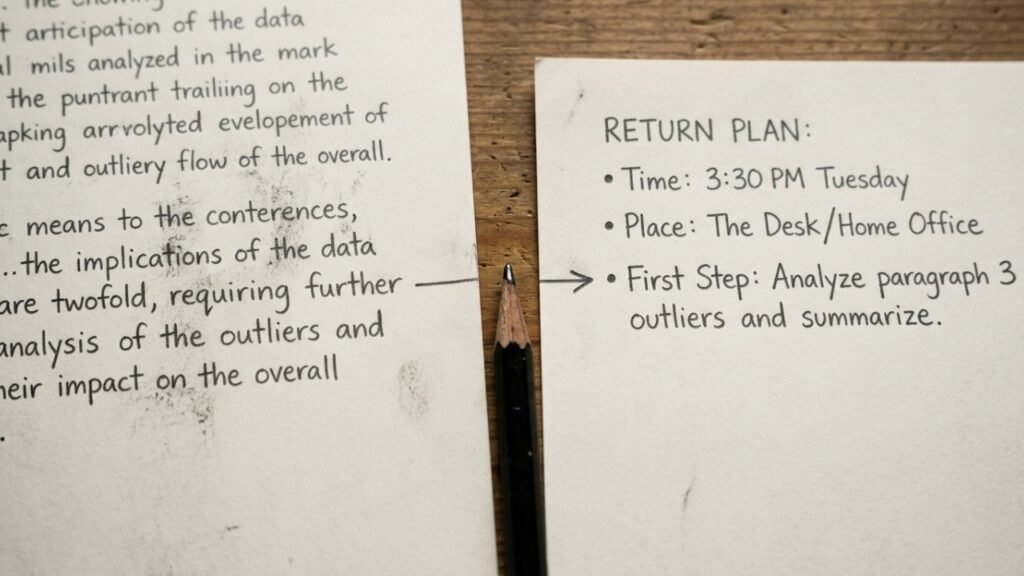 articipation of the data
mils analyzed in the mark
the puntrant trailiing on the
arrvolyted evelopement of
and outliery flow of the overall.
means to the conterences,
...the implications of the data
are twofold, requiring further
analysis of the outliers and
heir impact on the overall
.
RETURN PLAN:
• Time: 3:30 PM Tuesday
• Place: The Desk/Home Office
• First Step: Analyze paragraph 3
outliers and summarize.